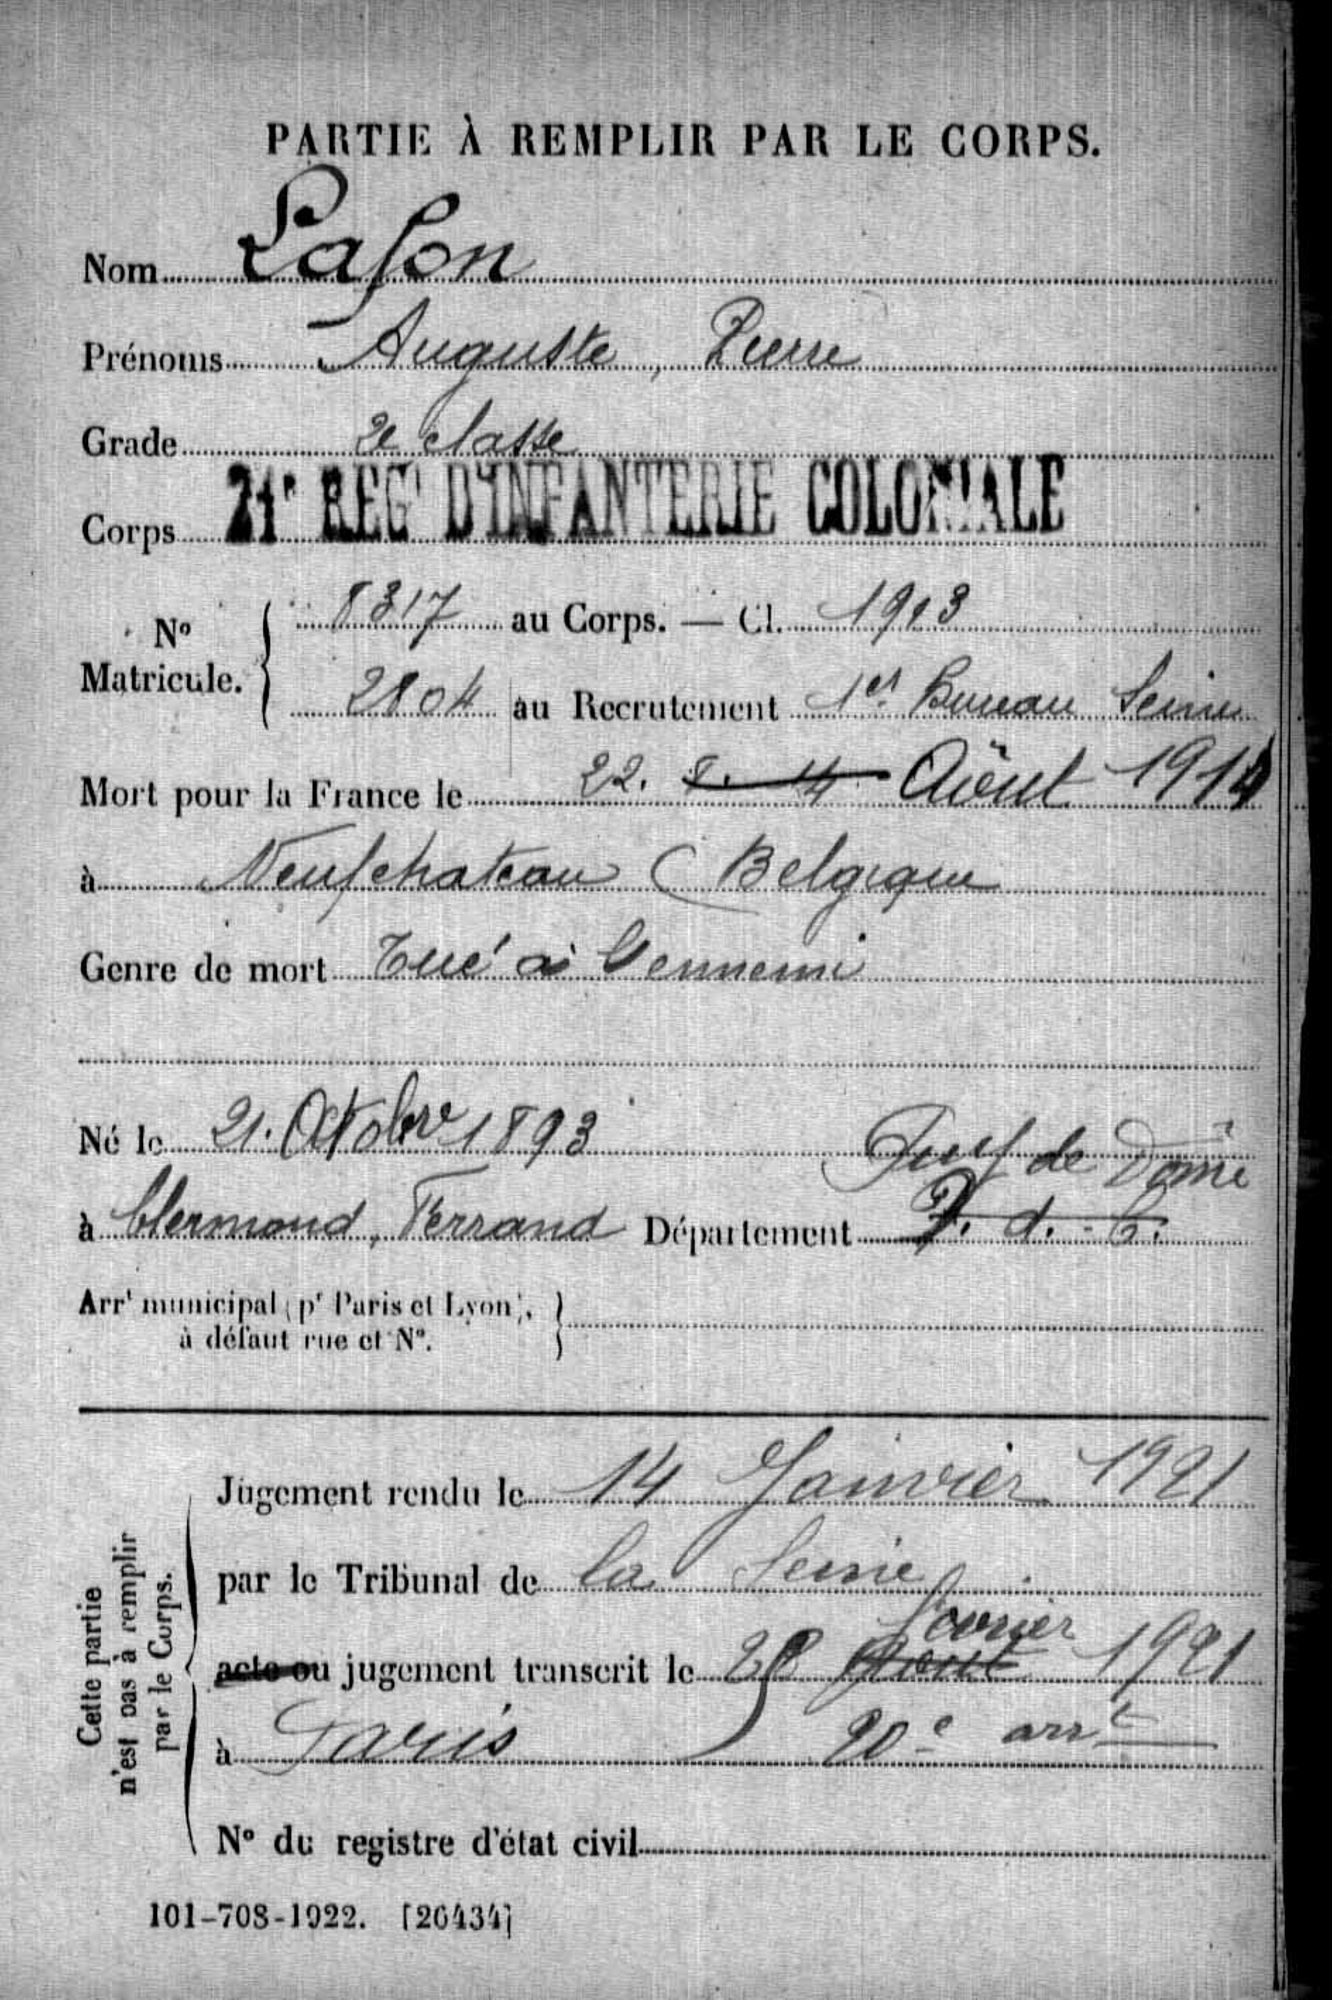 PARTIE À REMPLIR PAR LE CORPS.
Nom Lafon
Prénoms Auguste, Pierre
Grade 2e classe
Corps 21e REGt D'INFANTERIE COLONIALE
No Matricule. { 8317 au Corps. — Cl. 1913
2804 au Recrutement 1er Bureau Seine
Mort pour la France le 22. 8. 14 Août 1914
à Neufchateau (Belgique
Genre de mort Tué à l'ennemi
Né le 21. Octobre 1893 Puy de Dôme
à Clermond, Ferrand Département P. d. C.
Arrt municipal (pr Paris et Lyon), à défaut rue et No. }
Cette partie n'est pas à remplir par le Corps.
Jugement rendu le 14 Janvier 1921
par le Tribunal de la Seine
février
acte ou jugement transcrit le 28 Août 1921
à Paris 20e arrt
No du registre d'état civil
101-708-1922. [26434]